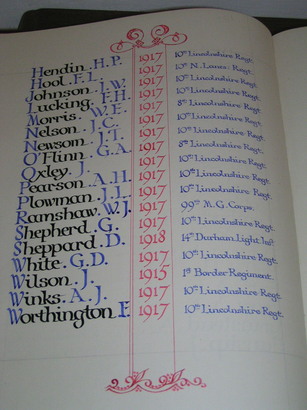 Hendin. H.P. 1917 10th Lincolnshire Regt.
Hool. F.L. 1917 10th N. Lancs. Regt.
Johnson. J.W. 1917 10th Lincolnshire Regt.
Lucking. F.H. 1917 10th Lincolnshire Regt.
Morris. W.E. 1917 8th Lincolnshire Regt.
Nelson. J.C. 1917 10th Lincolnshire Regt.
Newsom. J.T. 1917 10th Lincolnshire Regt.
O'Flinn. G.A. 1917 8th Lincolnshire Regt.
Oxley. J. 1917 10th Lincolnshire Regt.
Pearson. A.H. 1917 10th Lincolnshire Regt.
Plowman. J.L. 1917 10th Lincolnshire Regt.
Ramshaw. W.J. 1917 99th M.G. Corps.
Shepherd. G. 1917 10th Lincolnshire Regt.
Sheppard. D. 1918 14th Durham Light Inf.
White. G.D. 1917 10th Lincolnshire Regt.
Wilson. J. 1915 1st Border Regiment.
Winks. A.J. 1917 10th Lincolnshire Regt.
Worthington. F. 1917 10th Lincolnshire Regt.